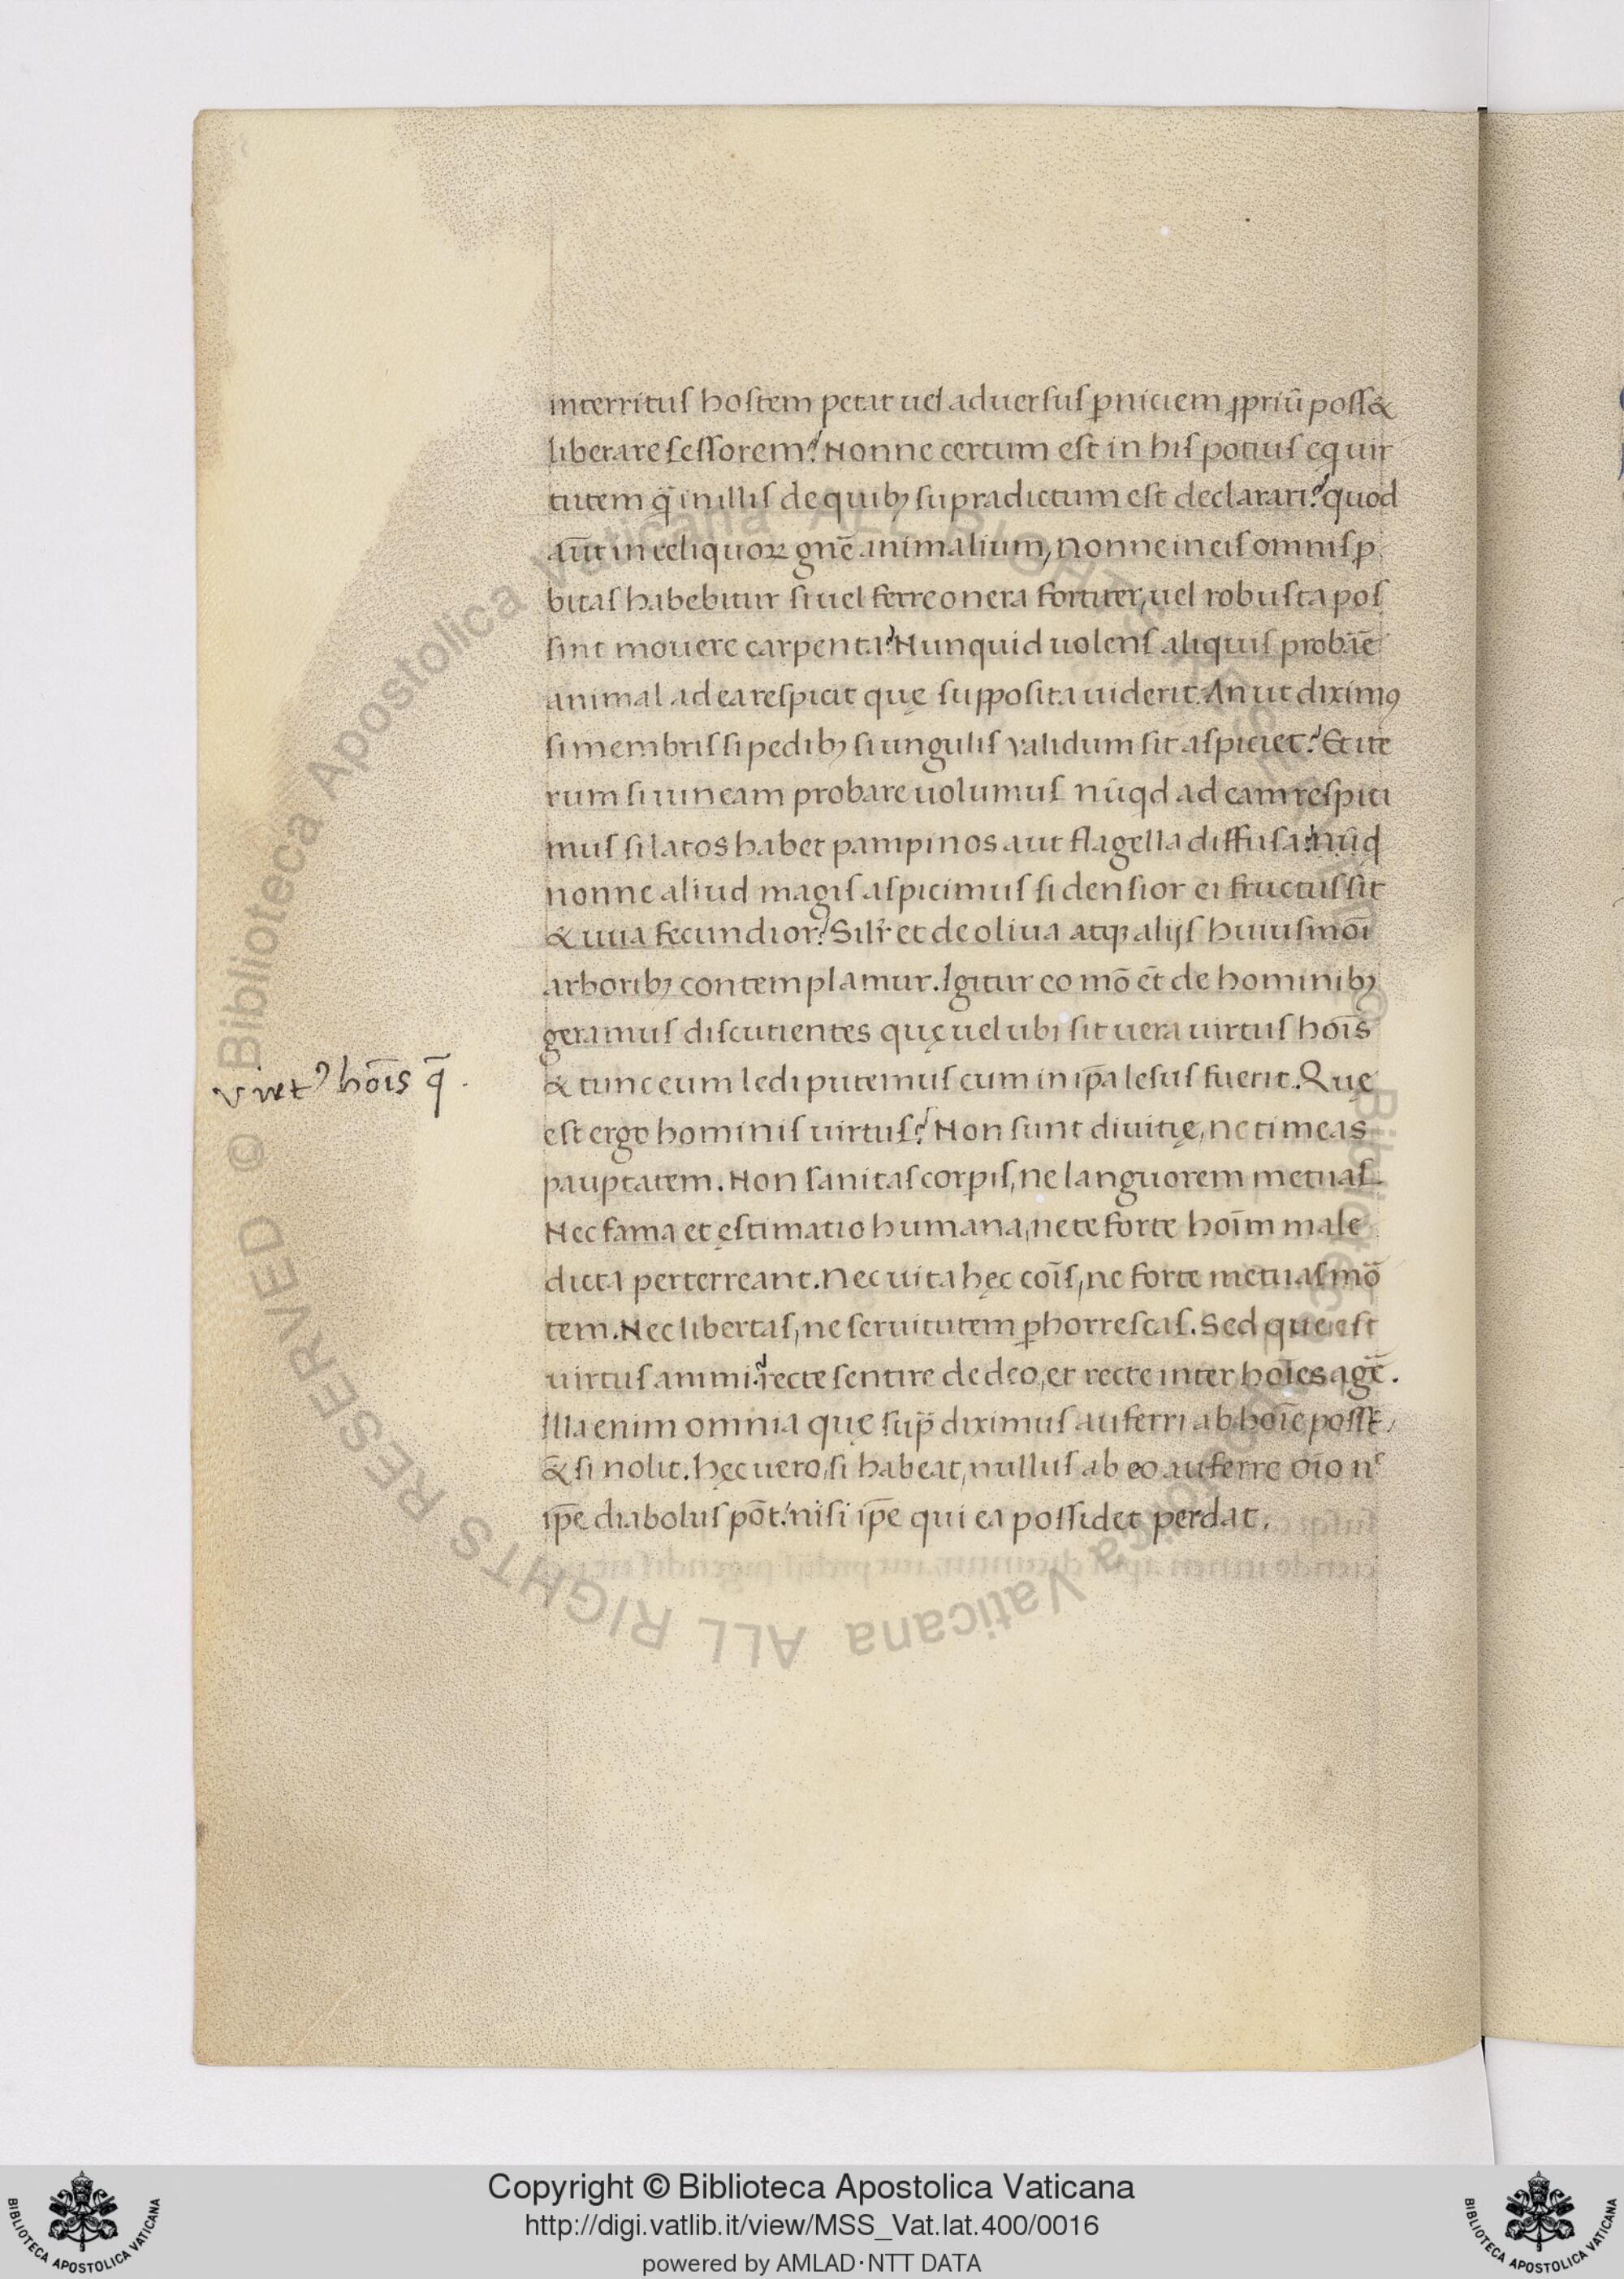 interritus hostem petat uel aduersus ꝑniciem ꝓpriū poss&
liberare sessorem? Nonne certum est in his potius eq uir
tutem q̃ in illis de quibꝫ supradictum est declarari? quod
aūt in reliquoꝝ gnē animalium, nonne in eis omnis ꝓ
bitas habebitur si uel ferre onera fortiter, uel robusta pos
sint mouere carpenta? Nunquid uolens aliquis probar̄e
animal ad ea respicit quę supposita uiderit. An ut diximꝰ
si membris si pedibꝫ si ungulis validum sit aspiciet? Et ite
rum si uineam probare uolumus nūqd ad eam respici
mus si latos habet pampinos aut flagella diffusa? nūqd
nonne aliud magis aspicimus si densior ei fructus sit
& uua fecundior? Silr̄ et de oliua atqꝫ alijs huiusmōi
arboribꝫ contemplamur. Igitur eo mō et̄ de hominibꝫ
geramus discutientes quę uel ubi sit uera uirtus hoīs
& tunc eum ledi putemus cum in ip̄a lesus fuerit. Quę
Virtꝰ hoīs q̄.
est ergo hominis uirtus? Non sunt diuitię, ne timeas
pauꝑtatem. Non sanitas corpīs, ne languorem metuas.
Nec fama et ęstimatio humana, ne te forte hoīm male
dicta perterreant. Nec uita hęc coīs, ne forte metuas mō
tem. Nec libertas, ne seruitutem ꝑhorrescas. Sed quę est
uirtus animi? recte sentire de deo, et recte inter hoīes agē.
Illa enim omnia quę sup̄ diximus auferri ab hoīe poss̄t,
& si nolit. hęc uero, si habeat, nullus ab eo auferre oīo nᶜ
ip̄e diabolus pōt: nisi ip̄e qui ea possidet perdat.
© Biblioteca Apostolica Vaticana ALL RIGHTS RESERVED
Copyright © Biblioteca Apostolica Vaticana
http://digi.vatlib.it/view/MSS_Vat.lat.400/0016
powered by AMLAD·NTT DATA
BIBLIOTECA APOSTOLICA VATICANA
BIBLIOTECA APOSTOLICA VATICANA